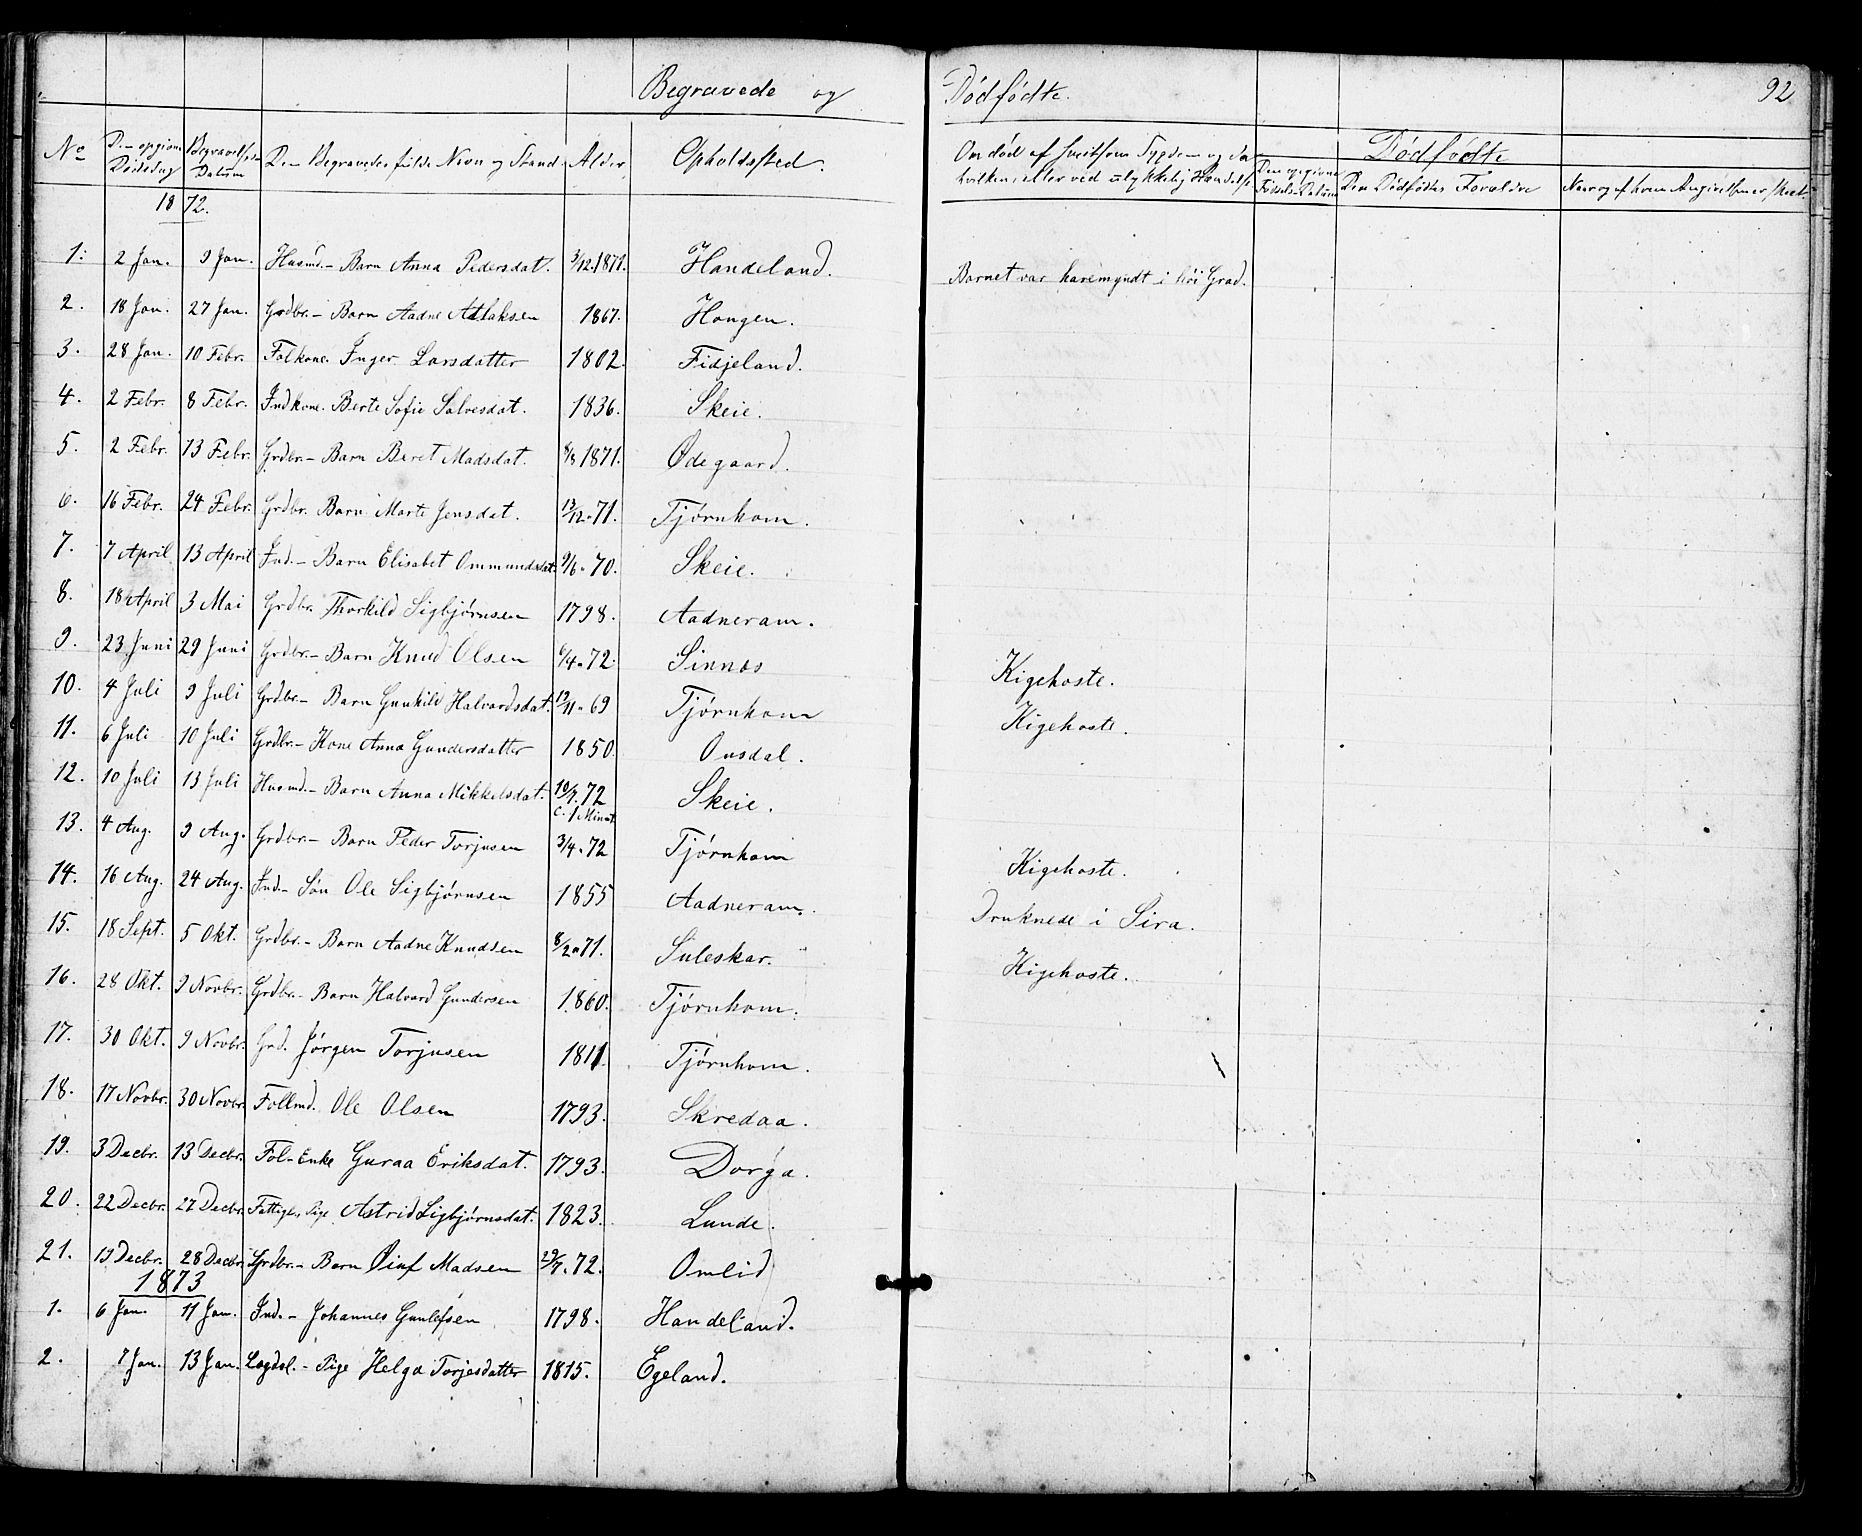 Begravede og Dødfødte. 92
No Den opgivne Dødsdag Begravelses Datum Den Begravedes fulde Navn og Stand Alder Opholdssted. Om død af smitsom Sygdom og da hvilken; eller ved ulykkelig Hændelse Dødfødte
Den opgivne Fødsels-Datum Den Dødfødtes Forældre Naar og af hvem Angivelsen er skeet
1872.
1. 2 Jan. 9 Jan. Husmd.- Barn Anna Pedersdat. 3/12.1871. Handeland. Barnet var haremyndt i høi Grad.
2. 18 Jan. 27 Jan. Grdbr.- Barn Aadne Aslaksen 1867. Hongen.
3. 28 Jan. 10 Febr. Folkone. Inger Larsdatter 1802. Fidjeland.
4. 2 Febr. 8 Febr. Indkone. Berte Sofie Salvesdat. 1836. Skeie.
5. 2 Febr. 13 Febr. Grdbr.- Barn Beret Madsdat. 8/8 1871. Ødegaard.
6. 16 Febr. 24 Febr. Grdbr. Barn Marte Jensdat. 13/12.71. Tjørnhom.
7. 7 April 13 April Ind.- Barn Elisabet Ommundsdat. 9/6.70. Skeie.
8. 18 April 3 Mai Grdbr. Thorkild Sigbjørnsen 1798. Aadneram.
9. 23 Juni 29 Juni Grdbr.- Barn Knud Olsen 6/4.72. Sinnes Kigehoste.
10. 4 Juli 9 Juli Grdbr.- Barn Gunhild Halvardsdat. 12/11.69 Tjørnhom Kigehoste.
11. 6 Juli 10 Juli Grdbr.- Kone Anna Gundersdatter 1850. Ousdal.
12. 10 Juli 13 Juli Husmd.- Barn Anna Mikkelsdat. 10/7.72 Skeie.
c. 1 Minut
13. 4 Aug. 9 Aug. Grdbr.- Barn Peder Torjusen 3/4.72 Tjørnhom Kigehoste.
14. 16 Aug. 24 Aug. Ind.- Søn Ole Sigbjørnsen 1855 Aadneram. Druknede i Sira.
15. 18 Sept. 5 Okt. Grdbr.- Barn Aadne Knudsen 8/2.71. Suleskar. Kigehoste.
16. 28 Okt. 9 Novbr. Grdbr.- Barn Halvard Gundersen 1860. Tjørnhom.
17. 30 Okt. 9 Novbr. Grd. Jørgen Torjusen 1811. Tjørnhom.
18. 17 Novbr. 30 Novbr. Follmd. Ole Olsen 1793. Skredaa.
19. 3 Decbr. 13 Decbr. Fol-Enke Guraa Eriksdat. 1793. Dorga.
20. 22 Decbr. 27 Decbr. Fattigl. Pige Astrid Sigbjørnsdat. 1823. Lunde.
21. 19 Decbr. 28 Decbr. Grdbr.- Barn Øinf Madsen 29/7.72. Omlid
1873
1. 6 Jan. 11 Jan. Ind.- Johannes Gunlefsen 1798. Handeland.
2. 7 Jan. 13 Jan. Lægdsl.- Pige Helga Torjesdatter 1815. Egeland.